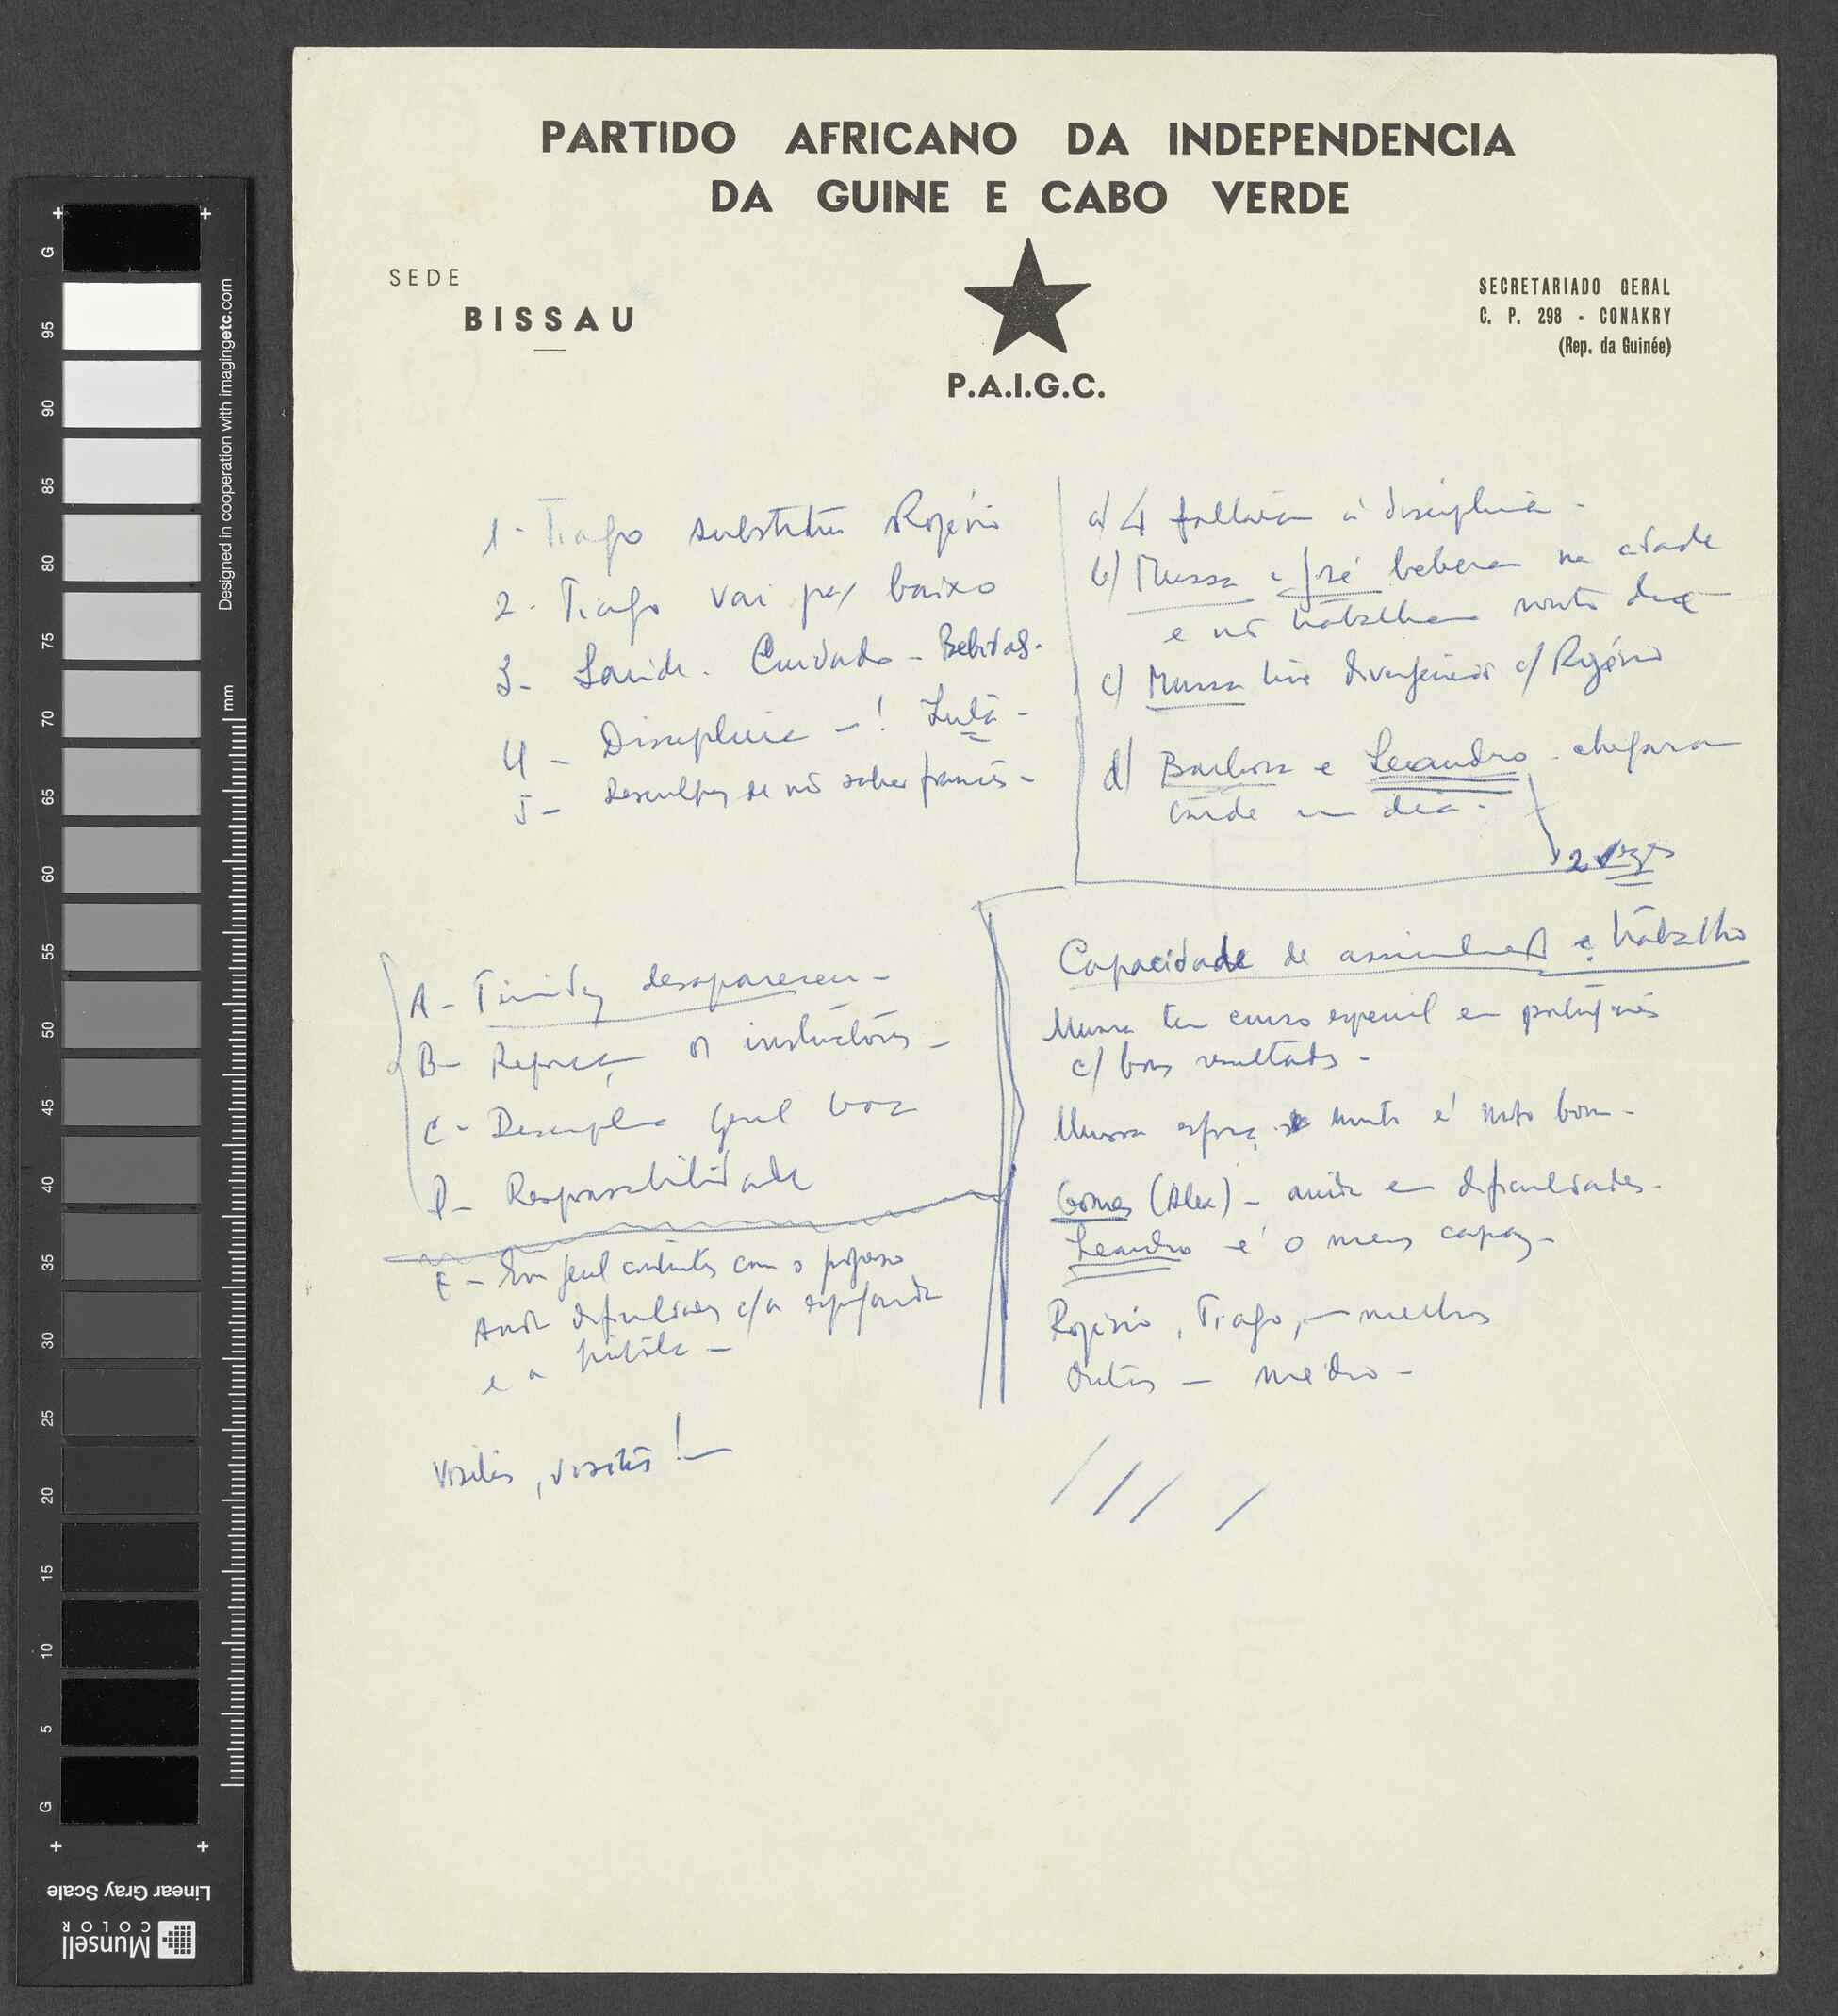 PARTIDO AFRICANO DA INDEPENDENCIA
DA GUINE E CABO VERDE
SEDE
BISSAU
SECRETARIADO GERAL
C. P. 298 - CONAKRY
(Rep. da Guinée)
P.A.I.G.C.
1 - Tiago substitui Rogério
2 - Tiago vai por baixo
3 - Saúde. Cuidado - Bebidas.
4 - Disciplina - ! Luta -
5 - Desculpas de não saber francês -
a) 4 faltaram à disciplina -
b) Mussa e José beberam na cidade
e não trabalharam neste dia
c) Mussa teve divergências c/ Rogério
d) Barbosa e Leandro - chegaram
tarde um dia -
2 vezes
A - Timidez desapareceu -
B - os instrutores -
C - Disciplina geral boa
D - Responsabilidade
E - Em geral contentes com o
dificuldades c/a
e a
Visitas, visitas! -
Capacidade de e trabalho
Mussa tem curso especial em português
c/ bons resultados -
Mussa esforça-se muito é muito bom -
Gomes (Alex) - ainda em dificuldades -
Leandro é o menos capaz -
Rogério, Tiago, - melhores
Outros - médio -
Designed in cooperation with imagingetc.com
mm
G
95
90
85
80
75
70
65
60
55
50
45
40
35
30
25
20
15
10
5
G
Linear Gray Scale
Munsell
COLOR